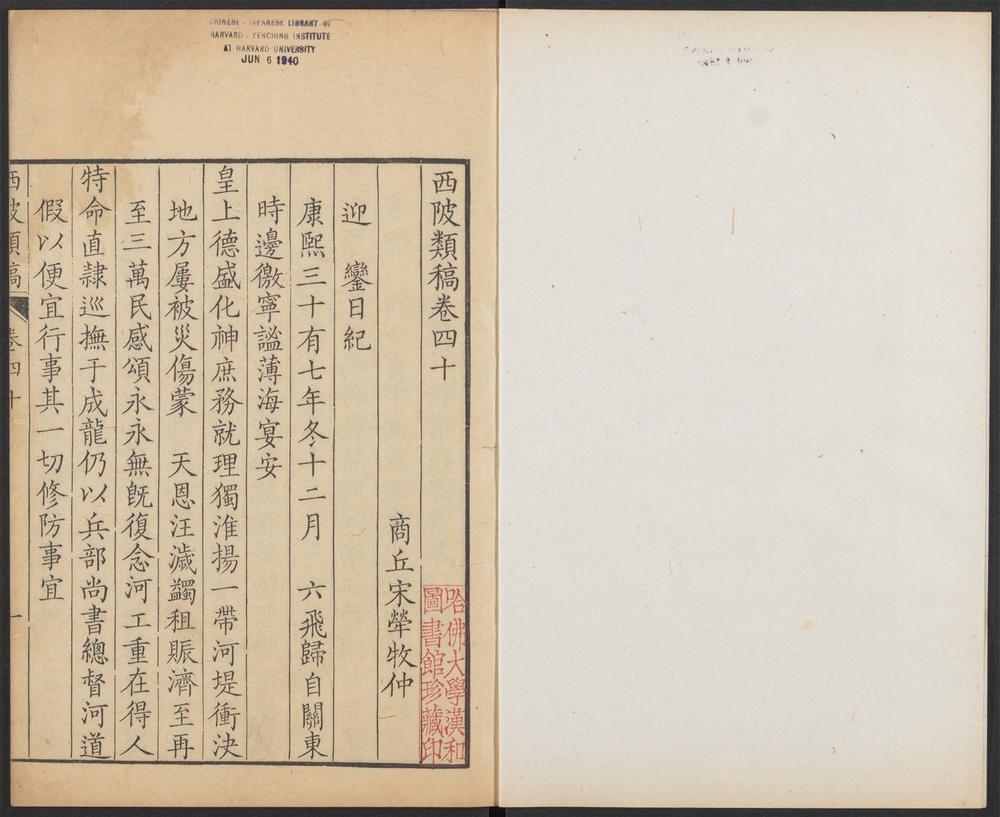 CHINESE - JAPANESE LIBRARY OF
HARVARD - YENCHING INSTITUTE
AT HARVARD UNIVERSITY
JUN 6 1940
西陂類稿卷四十
商丘宋犖牧仲
迎 鑾日紀
康熙三十有七年冬十二月 六飛歸自關東
時邊徼寧謐薄海宴安
皇上德盛化神庶務就理獨淮揚一帶河堤衝決
地方屢被災傷蒙 天恩汪濊蠲租賑濟至再
至三萬民感頌永永無旣復念河工重在得人
特命直隷巡撫于成龍仍以兵部尚書總督河道
假以便宜行事其一切修防事宜
西陂類稿 卷四十 一
哈佛大學漢和
圖書館珍藏印